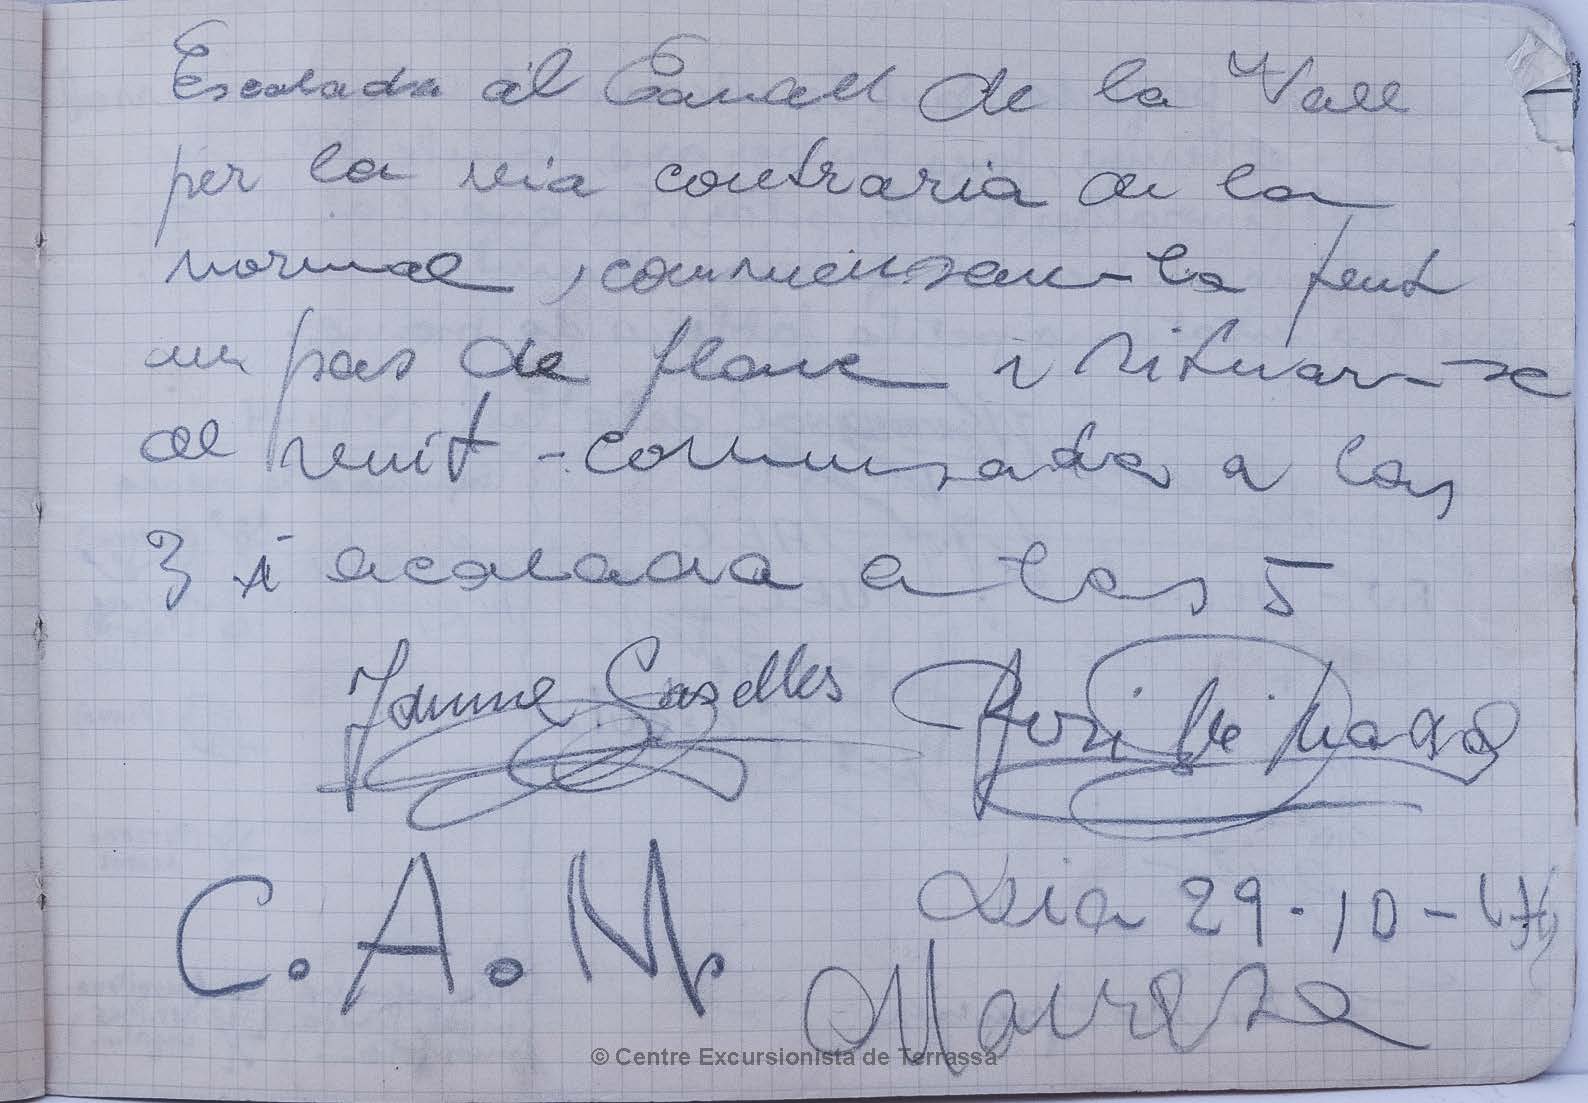 Escalada al Cavall de la Vall
per la via contraria de la
normal, comensan-la fent
un pas de flanc i situar-se
al mitt - comensada a las
3 i acabada a las 5
Jaume Casellas
C. A. M.
Dia 29-10-
Manresa
© Centre Excursionista de Terrassa